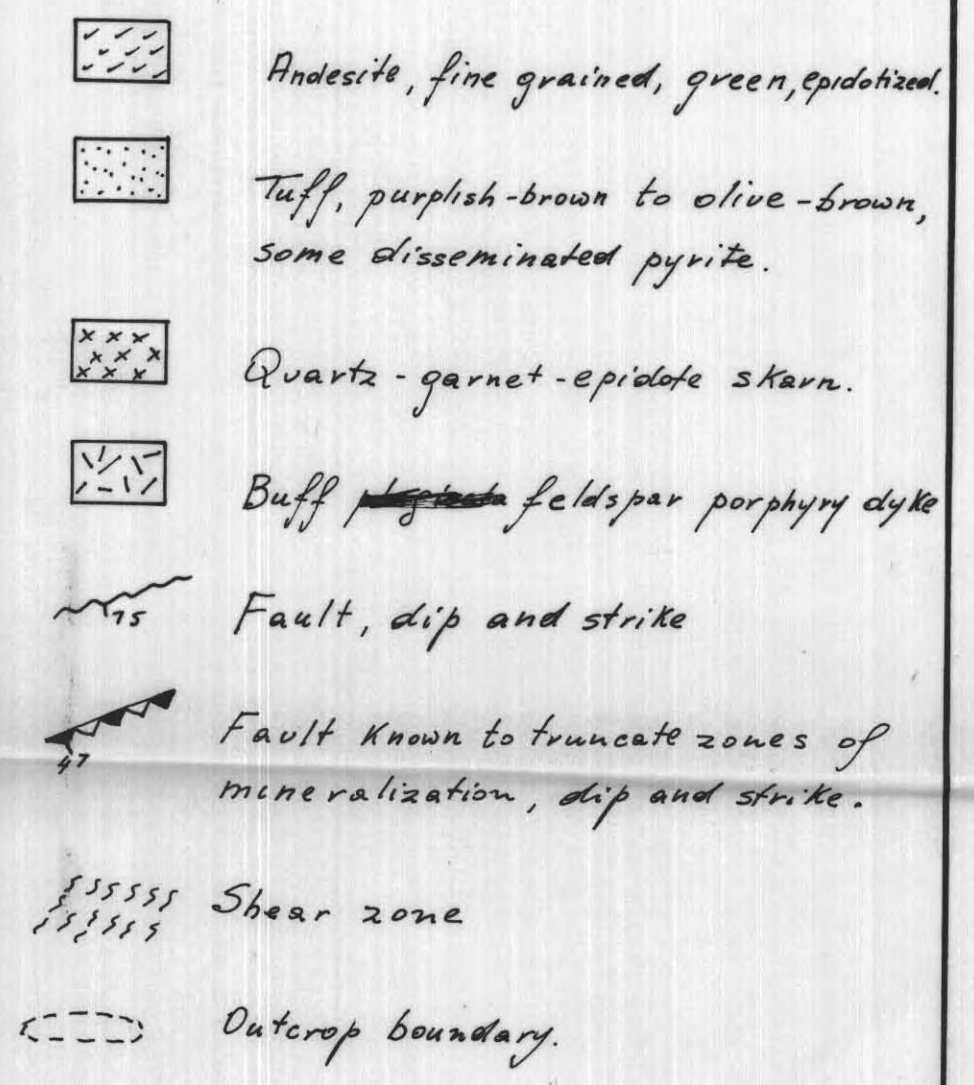 Andesite, fine grained, green, epidotized.
Tuff, purplish-brown to olive-brown,
some disseminated pyrite.
Quartz-garnet-epidote skarn.
Buff feldspar porphyry dyke
75
Fault, dip and strike
47
Fault known to truncate zones of
mineralization, dip and strike.
Shear zone
Outcrop boundary.